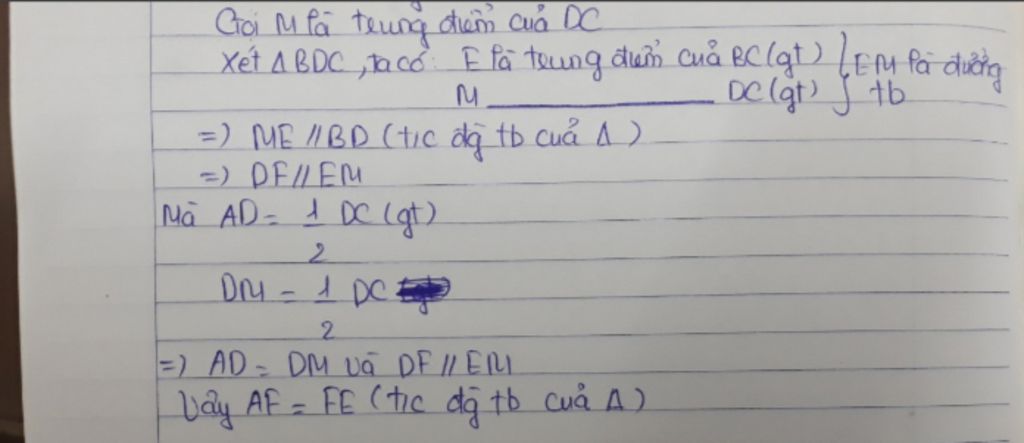 Gọi M là trung điểm của DC
Xét ΔBDC, ta có: E là trung điểm của BC (gt) } EM là đường
M ____________ DC (gt) } tb
=) ME // BD (t/c đg̃ tb của Δ)
=) DF // EM
Mà AD = 1/2 DC (gt)
DM = 1/2 DC
=) AD = DM và DF // EM
Vậy AF = FE (t/c đg̃ tb của Δ)